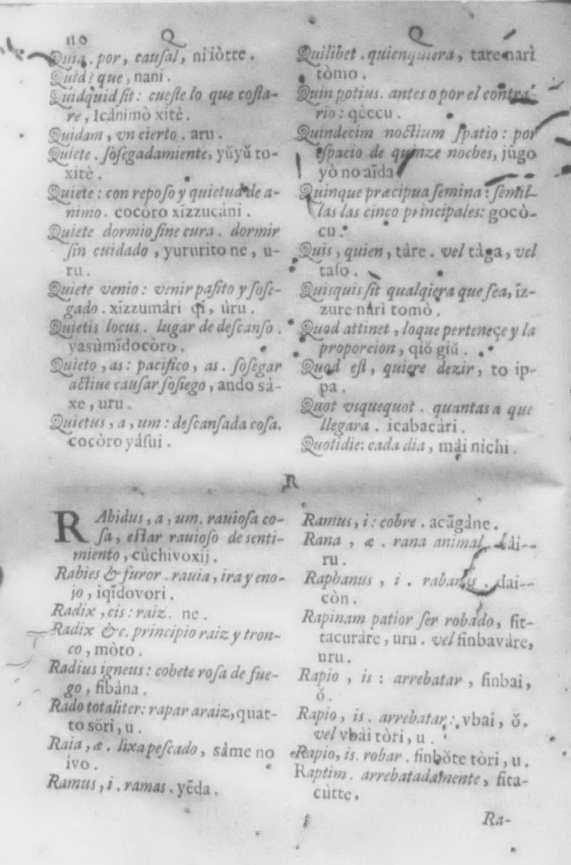 110 Q Q
Quia. por, causal, ni iòtte.
Quid? que, nani.
Quidquid sit: cueste lo que costa-
re, Icánimò xitè.
Quidam, vn cierto. aru.
Quiete. sosegadamiente, yŭyŭ to-
xitè.
Quiete: con reposo y quietud de a-
nimo. cocòro xizzucàni.
Quiete dormio sine cura. dormir
sin cuidado, yururito ne, u-
ru.
Quiete venio: venir pasito y sose-
gado. xizzumàri qi, ùru.
Quietis locus. lugar de descanso.
yasùmidocòro.
Quieto, as: pacifico, as. sosegar
actiue causar sosiego, ando sà-
xe, uru.
Quietus, a, um: descansada cosa.
cocòro yàsui.
Quilibet. quienquiera, tare narì
tòmo.
Quin potius. antes o por el contra-
rio: qèccu.
Quindecim noctium spatio: por
espacio de quinze noches, jŭgo
yò no aĩda
Quinque præcipua semina: semil-
las las cinco principales: gocò-
cu.
Quis, quien, tàre. vel tàga, vel
taso.
Quisquis sit qualqiera que sea, ĩz-
zure nàri tomò.
Quod attinet, loque perteneçe y la
proporcion, qiŏ giŭ.
Quod est, quiere dezir, to ip-
pa.
Quot vsquequot. quantas a que
llegara. icabacàri.
Quotidie: cada dia, mài nichi.
R
RAbidus, a, um. rauiosa co-
sa, estar rauioso de senti-
miento, cùchivoxij.
Rabies & furor. rauia, ira y eno-
jo, iqĩdovori.
Radix, cis: raiz. ne.
Radix &c. principio raiz y tron-
co, mòto.
Radius igneus: cobete rosa de fue-
go, fibàna.
Rado totaliter: rapar araiz, quat-
to sòri, u.
Raia, æ. lixa pescado, sàme no
ivo.
Ramus, i. ramas. yẽda.
Ramus, i: cobre. acãgàne.
Rana, æ. rana animal.
ru.
Raphanus, i. rabano. dai-
còn.
Rapinam patior ser robado, fit-
tacuràre, uru. vel finbavàre,
uru.
Rapio, is: arrebatar, finbai,
ŏ.
Rapio, is. arrebatar: vbai, ŏ.
vel vbai tòri, u.
Rapio, is. robar. finbŏte tòri, u.
Raptim. arrebatadamente, fita-
cùtte.
Ra-